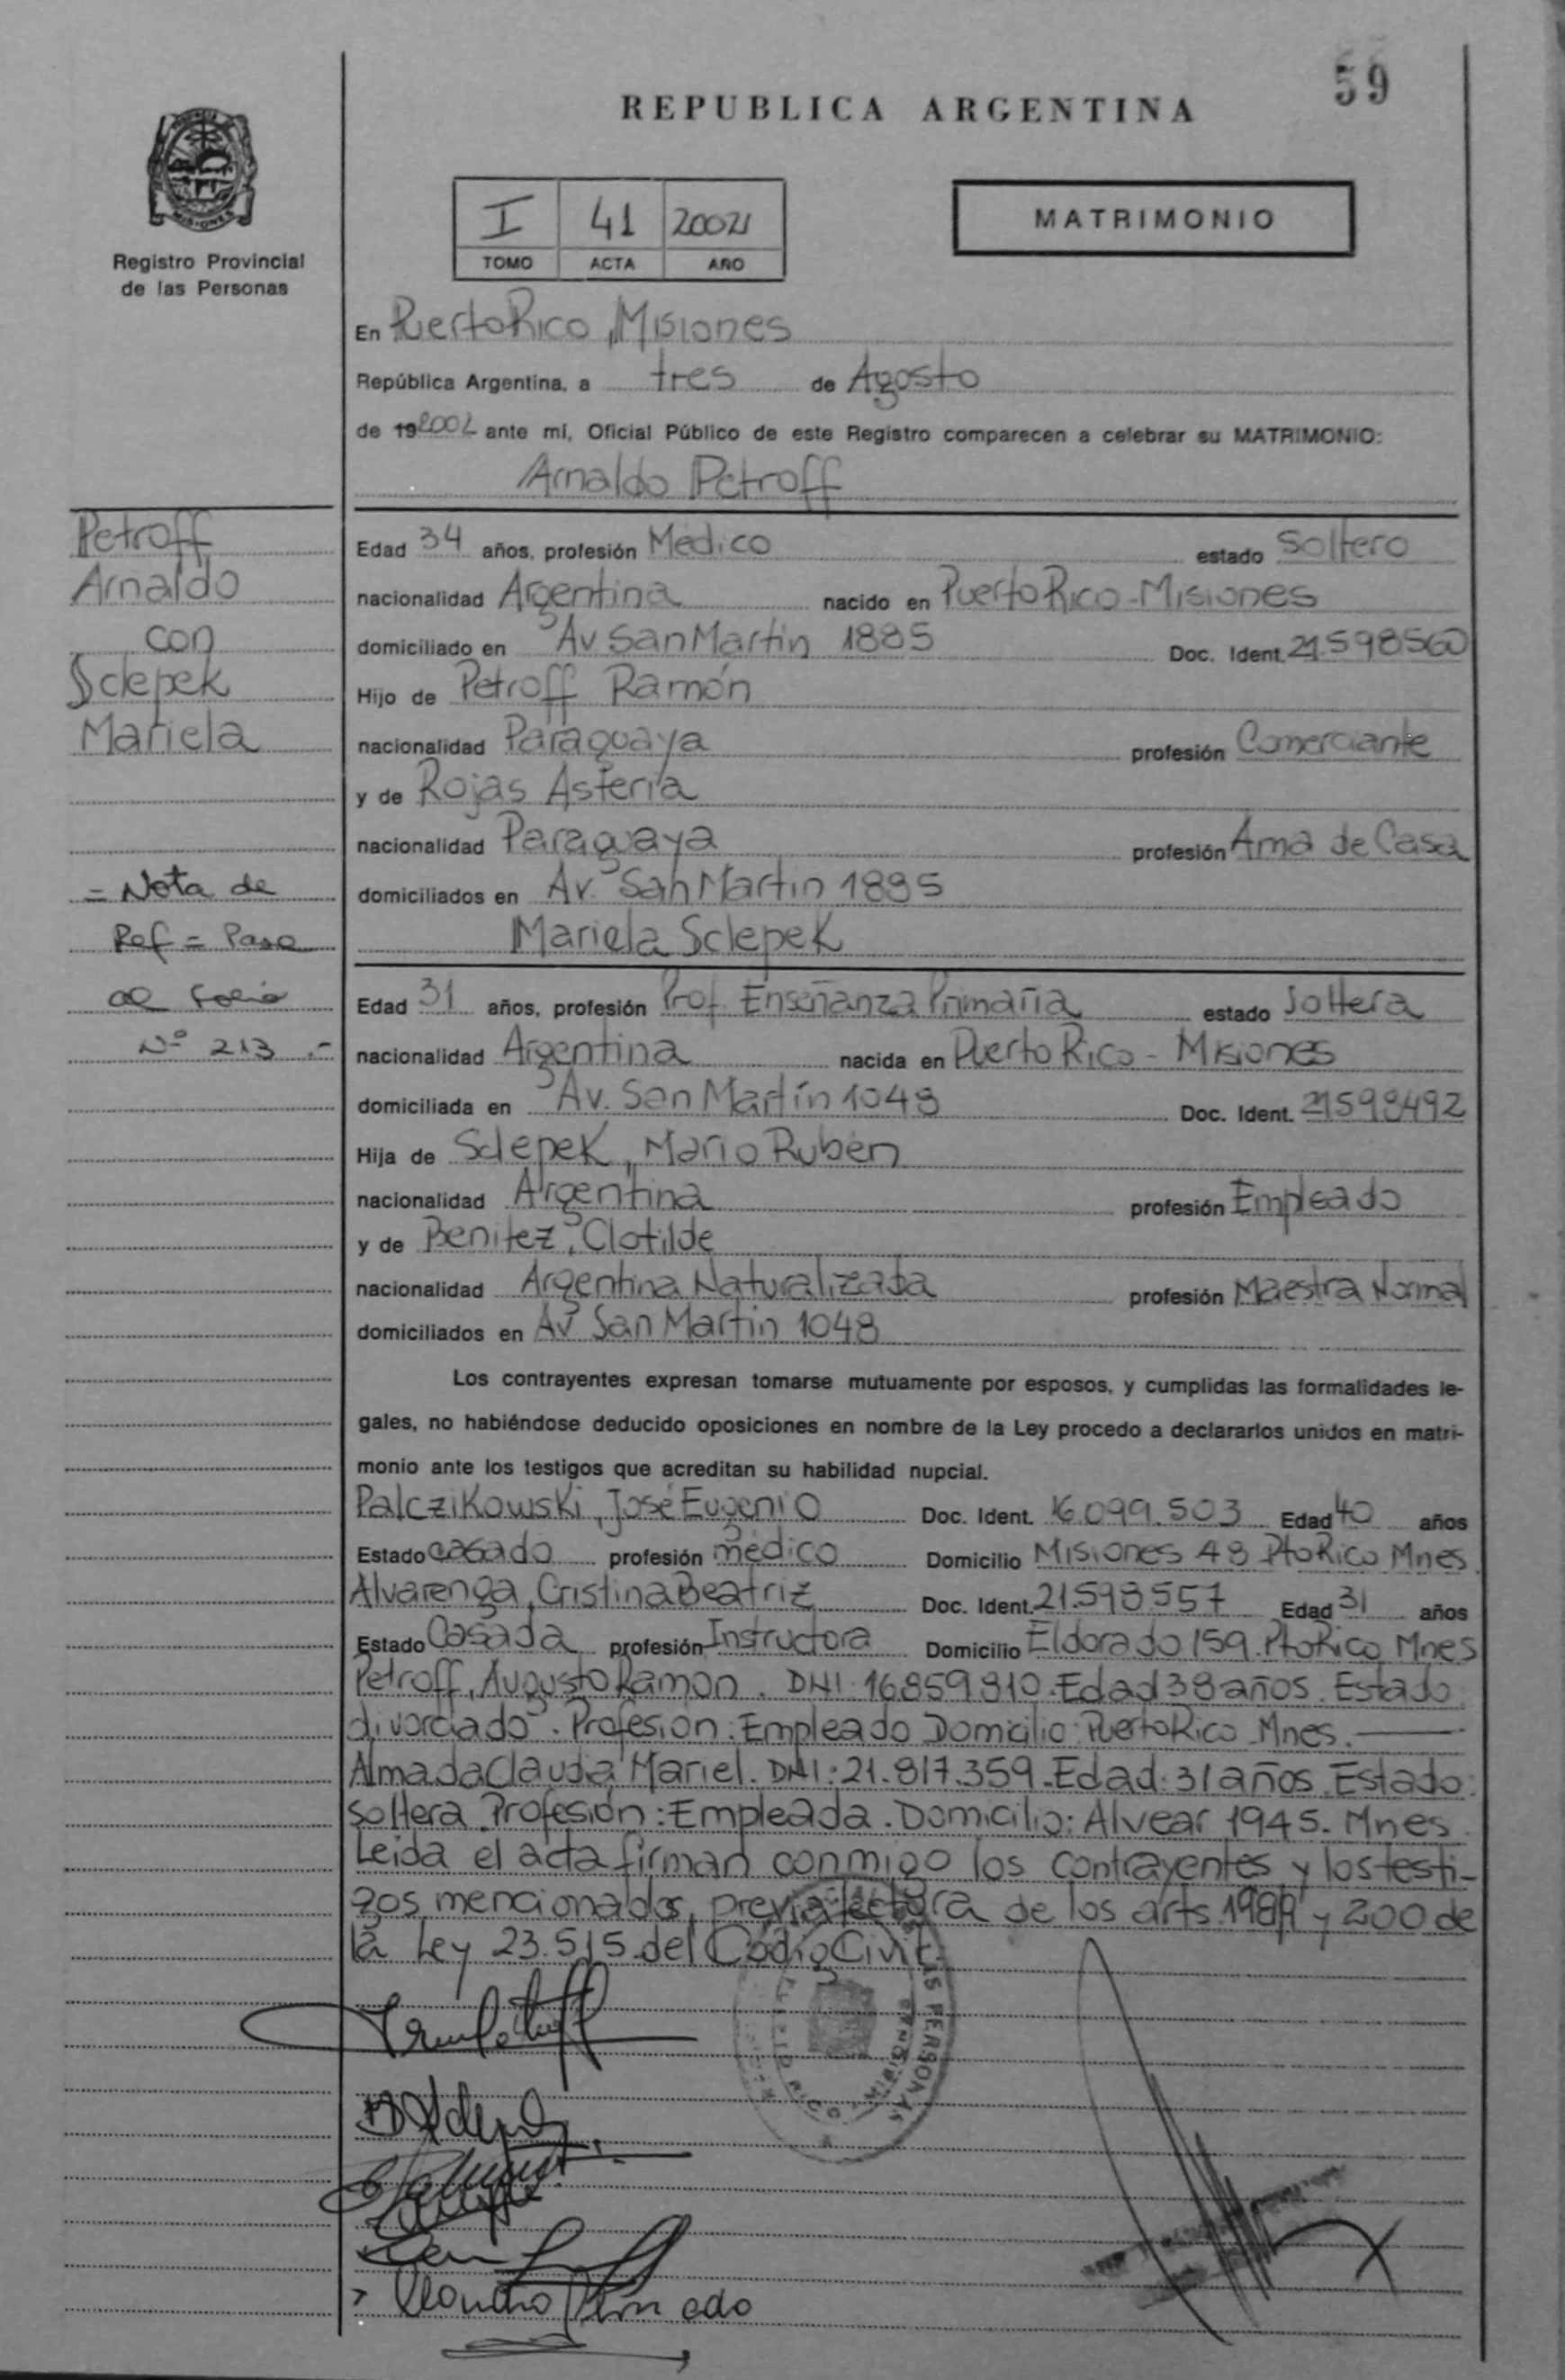 59
REPUBLICA ARGENTINA
MISIONES
Registro Provincial
de las Personas
I 41 2002
TOMO ACTA AÑO
MATRIMONIO
En Puerto Rico, Misiones
República Argentina, a tres de Agosto
de 19 2002 ante mí, Oficial Público de este Registro comparecen a celebrar su MATRIMONIO:
Arnaldo Petroff
Petroff
Arnaldo
con
Sclepek
Mariela
= Nota de
Ref = Pase
al folio
Nº 213.-
Edad 34 años, profesión Médico estado Soltero
nacionalidad Argentina nacido en Puerto Rico - Misiones
domiciliado en Av San Martín 1885 Doc. Ident. 21.598560
Hijo de Petroff Ramón
nacionalidad Paraguaya profesión Comerciante
y de Rojas Asteria
nacionalidad Paraguaya profesión Ama de Casa
domiciliados en Av. San Martin 1885
Mariela Sclepek
Edad 31 años, profesión Prof. Enseñanza Primaria estado Soltera
nacionalidad Argentina nacida en Puerto Rico - Misiones
domiciliada en Av. San Martín 1048 Doc. Ident. 21598492
Hija de Sclepek, Mario Rubén
nacionalidad Argentina profesión Empleado
y de Benitez, Clotilde
nacionalidad Argentina Naturalizada profesión Maestra Normal
domiciliados en Av San Martin 1048
Los contrayentes expresan tomarse mutuamente por esposos, y cumplidas las formalidades le-
gales, no habiéndose deducido oposiciones en nombre de la Ley procedo a declararlos unidos en matri-
monio ante los testigos que acreditan su habilidad nupcial.
Palczikowski, José Eugenio Doc. Ident. 16.099.503 Edad 40 años
Estado casado profesión médico Domicilio Misiones 48 Pto Rico Mnes
Alvarenga, Cristina Beatriz Doc. Ident. 21.598.557 Edad 31 años
Estado Casada profesión Instructora Domicilio Eldorado 159. Pto Rico Mnes
Petroff, Augusto Ramon. DNI. 16859810. Edad 38 años. Estado
divorciado. Profesion: Empleado Domicilio: Puerto Rico Mnes.
Almada Claudia Mariel. DNI: 21.817.359. Edad: 31 años. Estado:
Soltera. Profesión: Empleada. Domicilio: Alvear 1945. Mnes
Leida el acta firman conmigo los contrayentes y los testi-
gos mencionados, previa lectura de los arts. y 200 de
la Ley 23.515 del Código Civil.